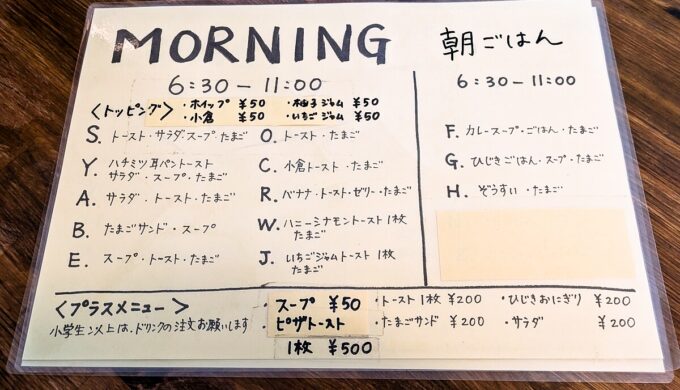 MORNING
6:30-11:00
<トッピング> ・ホイップ ¥50 ・柚子ジャム ¥50
・小倉 ¥50 ・いちごジャム ¥50
S. トースト・サラダスープ・たまご
Y. ハチミツ耳パントースト
サラダ・スープ・たまご
A. サラダ・トースト・たまご
B. たまごサンド・スープ
E. スープ・トースト・たまご
O. トースト・たまご
C. 小倉トースト・たまご
R. バナナ・トースト・ゼリー・たまご
W. ハニーシナモントースト1枚
たまご
J. いちごジャムトースト1枚
たまご
朝ごはん
6:30-11:00
F. カレースープ・ごはん・たまご
G. ひじきごはん・スープ・たまご
H. ぞうすい・たまご
<プラスメニュー>
小学生以上は、ドリンクの注文お願いします
・スープ ¥50 ・トースト1枚 ¥200 ・ひじきおにぎり ¥200
・ピザトースト ・たまごサンド ¥200 ・サラダ ¥200
1枚 ¥500